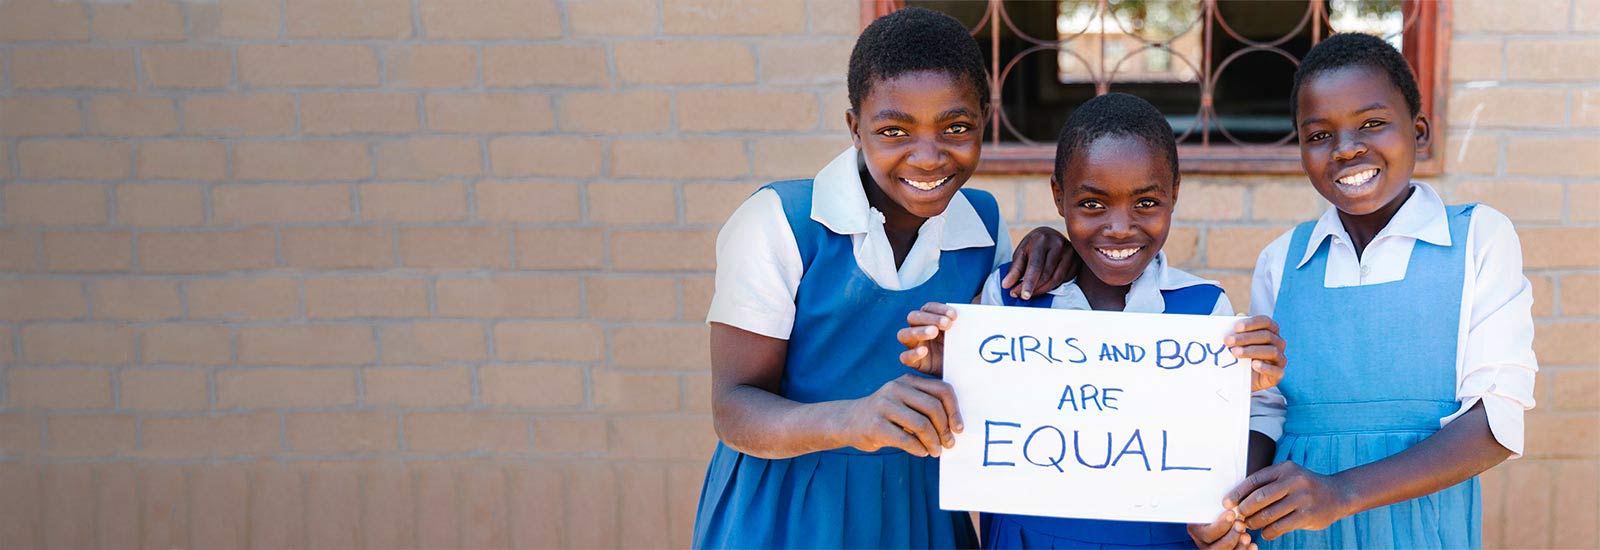 GIRLS AND BOYS
ARE
EQUAL